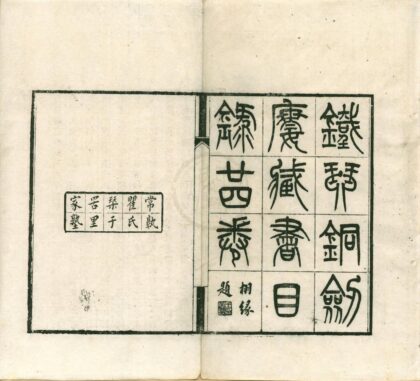 鐵琴銅劍
樓藏書目
錄廿四卷
栩緣
題
常熟
瞿氏
栞于
罟里
家塾